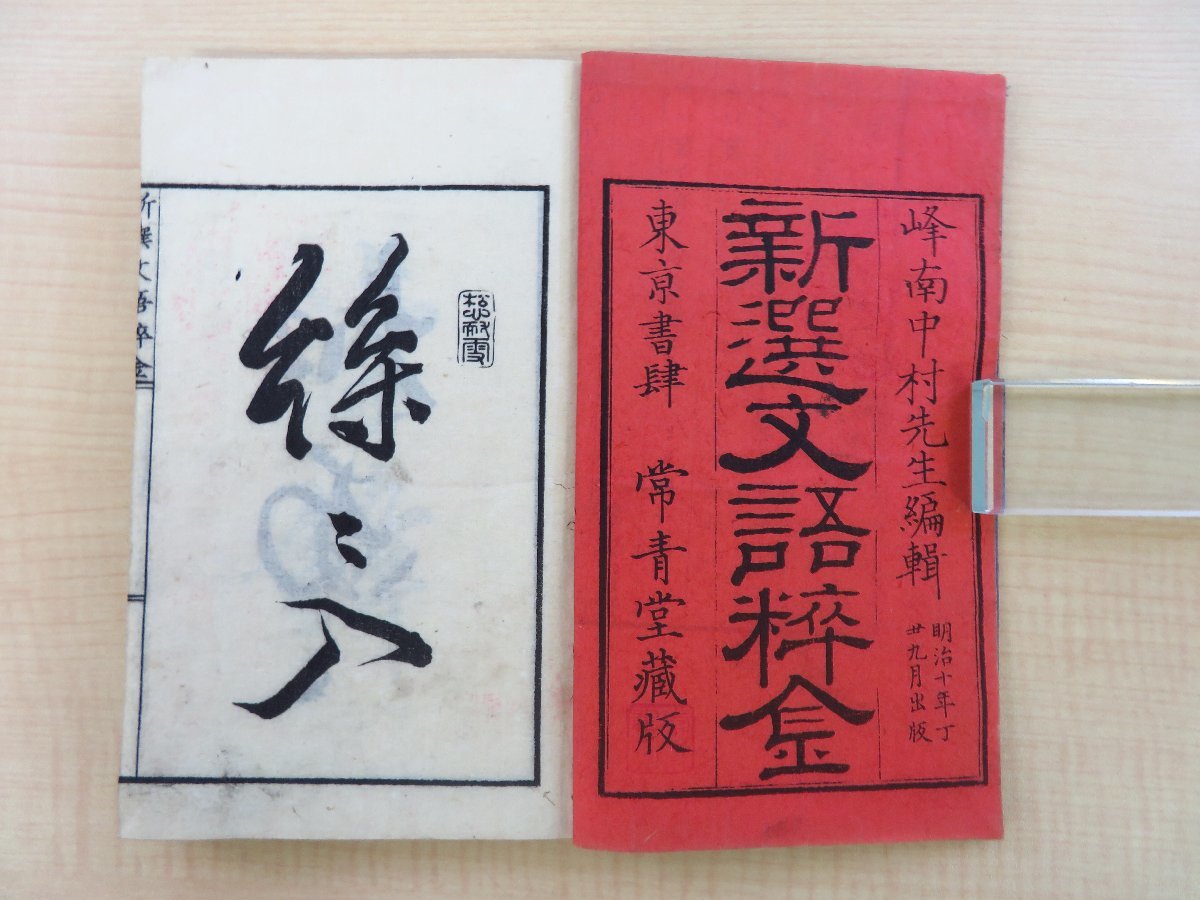 峰南中村先生編輯
明治十年丁
丑九月出版
新選文語粋金
東京書肆 常青堂藏版
新撰文語粋金